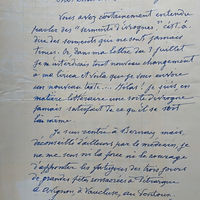 Vous avez certainement entendu
parler des "serments d'ivrognes" c'est-à-
dire des serments qui ne sont jamais
tenus. Or dans ma lettre du 1 juillet
je m'interdisais tout nouveau changement
à ma et voilà que je vous envoie
un nouveau texte... Hélas ! je suis, en
matière littéraire une sorte d'ivrogne
jamais satisfait de ce qu'il a
lui-même.
Je suis rentré à mais,
déconseillé d'ailleurs par le médecin, je
ne me sens ni la force ni le courage
d'affronter les fatigues des trois jours
de grandes fêtes consacrées à Pétrarque
à Avignon, à Vaucluse,